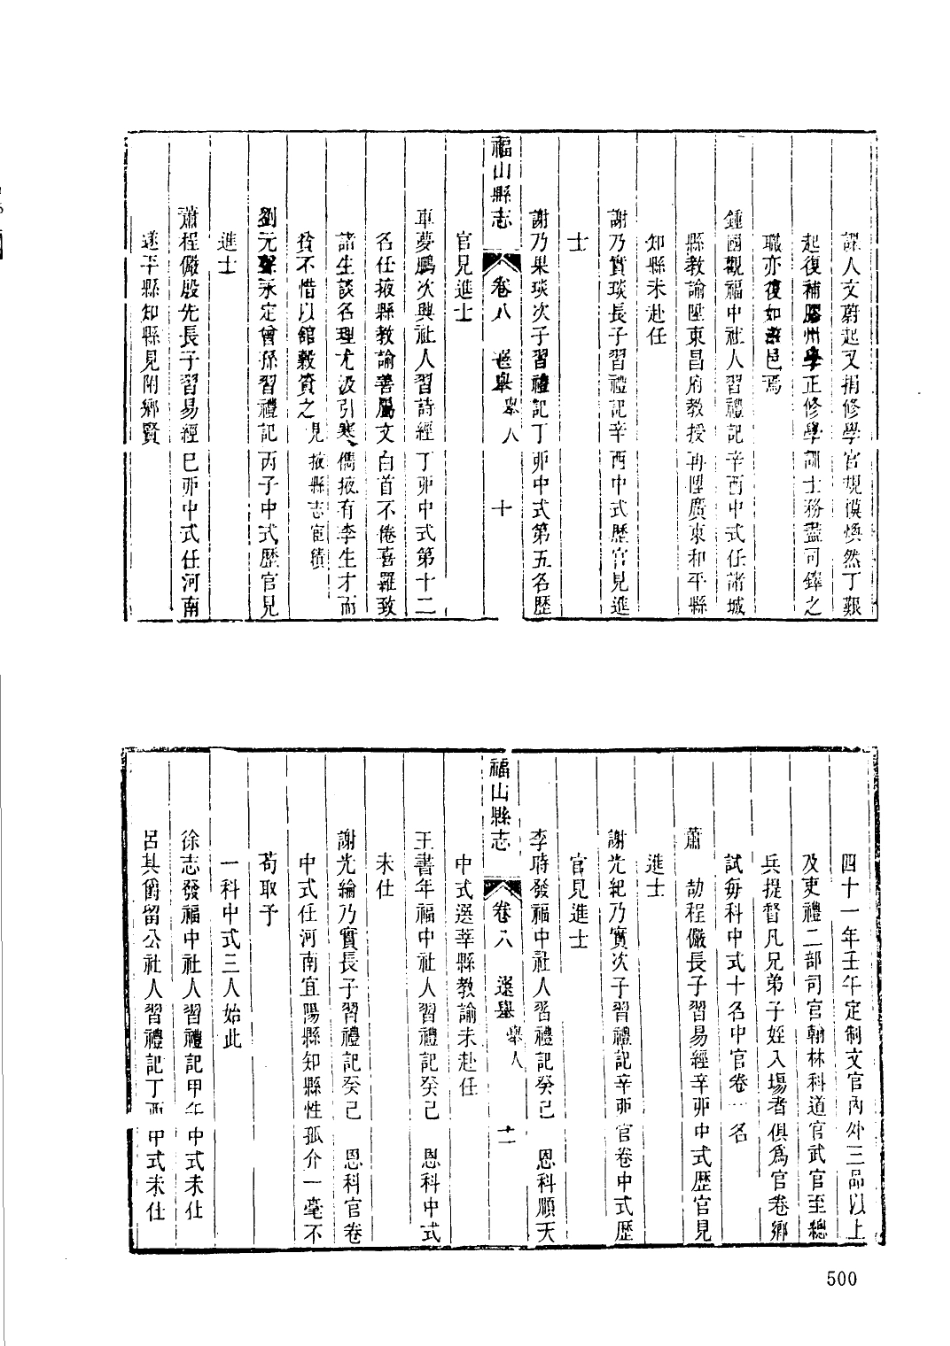 課人文蔚起又捐修學宮規模煥然丁艱
起復補膠州學正修學訓士務盡司鐸之
職亦復如諸邑焉
鍾國觀福中社人習禮記辛酉中式任諸城
縣教諭陞東昌府教授再陞廣東和平縣
知縣未赴任
謝乃實琰長子習禮記辛酉中式歷官見進
士
謝乃果琰次子習禮記丁卯中式第五名歷
福山縣志 卷八 選舉 舉人 十
官見進士
車夢鵬次興社人習詩經丁卯中式第十二
名任掖縣教諭善屬文白首不倦喜羅致
諸生談名理尤汲引寒儁掖有李生才而
貧不惜以館穀資之見掖縣志宦績
劉元聲永定曾孫習禮記丙子中式歷官見
進士
蕭程儼殷先長子習易經己卯中式任河南
遂平縣知縣見附鄉賢
四十一年壬午定制文官內外三品以上
及吏禮二部司官翰林科道官武官至總
兵提督凡兄弟子姪入場者俱為官卷鄉
試每科中式十名中官卷一名
蕭 劼程儼長子習易經辛卯中式歷官見
進士
謝光紀乃實次子習禮記辛卯官卷中式歷
官見進士
李時發福中社人習禮記癸己 恩科順天
福山縣志 卷八 選舉 舉人 十一
中式選莘縣教諭未赴任
王書年福中社人習禮記癸己 恩科中式
未仕
謝光綸乃實長子習禮記癸己 恩科官卷
中式任河南宜陽縣知縣性孤介一毫不
苟取予
一科中式三人始此
徐志發福中社人習禮記甲午中式未仕
呂其爵留公社人習禮記丁酉中式未仕
500